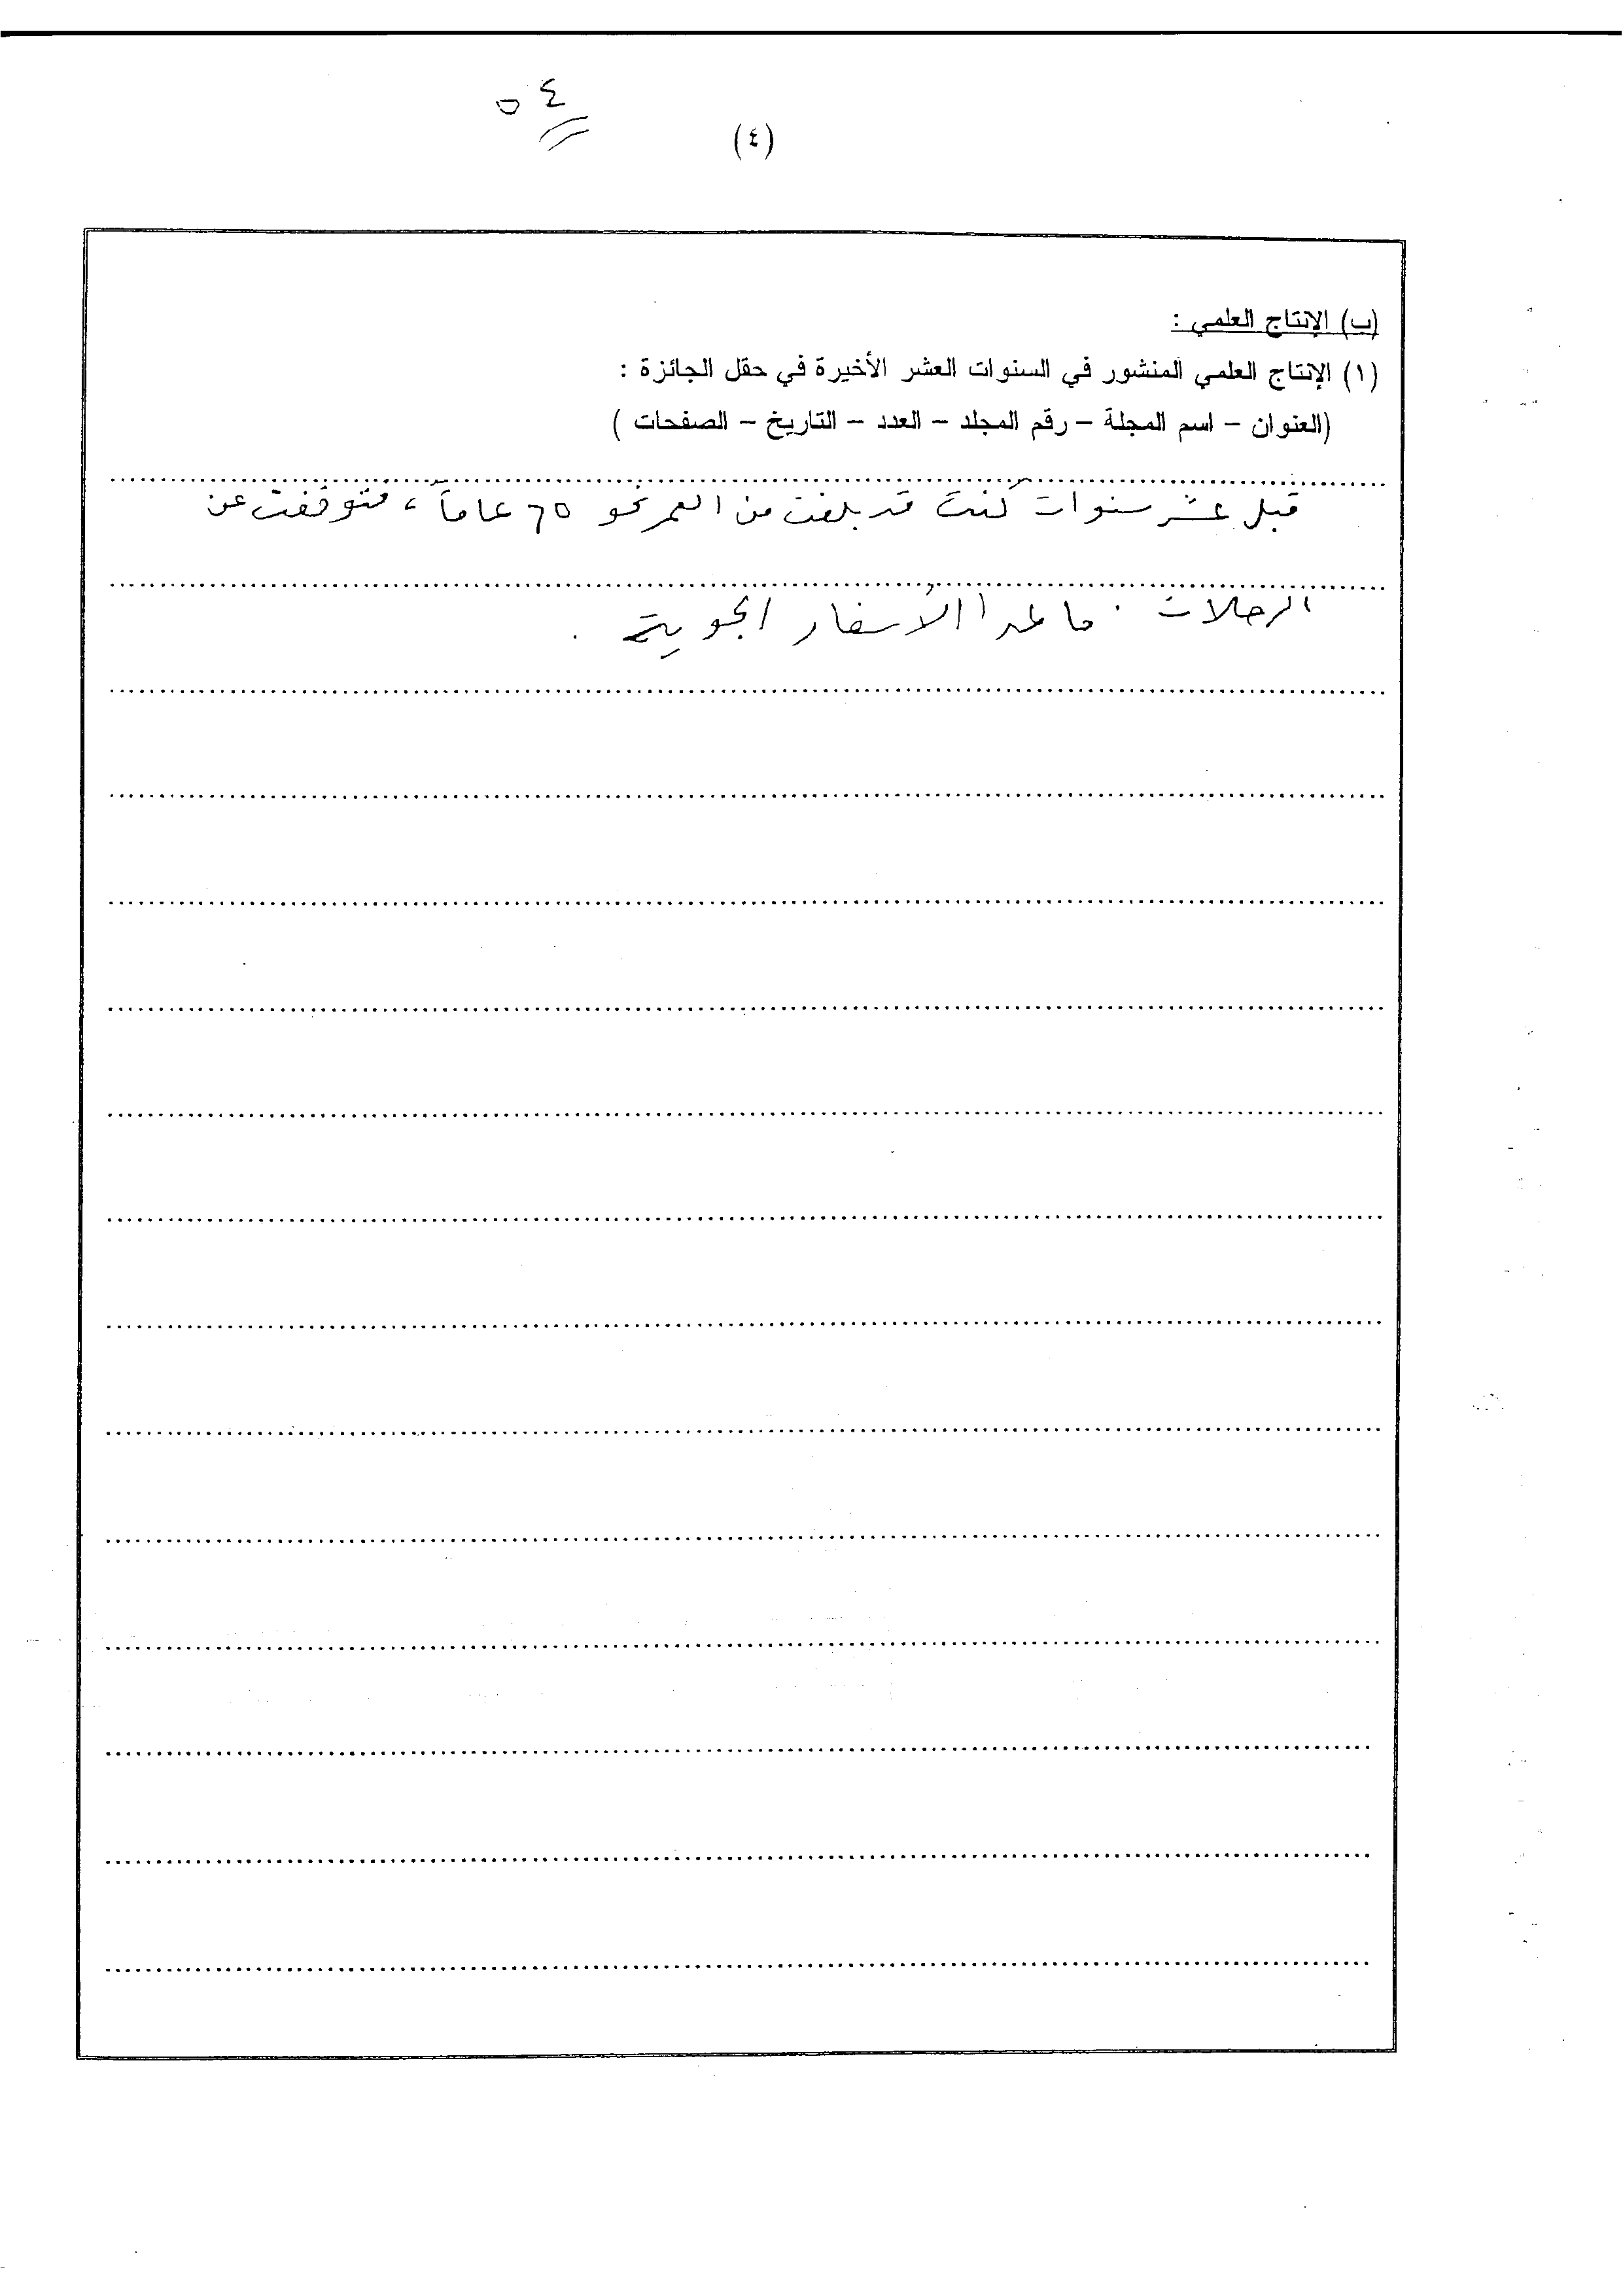 ٥٤
(٤)
(ب) الإنتاج العلمي :
(١) الإنتاج العلمي المنشور في السنوات العشر الأخيرة في حقل الجائزة :
(العنوان – اسم المجلة – رقم المجلد – العدد – التاريخ – الصفحات )
قبل عشر سنوات كنت قد بلغت من العمر نحو ٦٥ عاماً ، فتوقفت عن
الرحلات . ما عدا الأسفار الجوية .